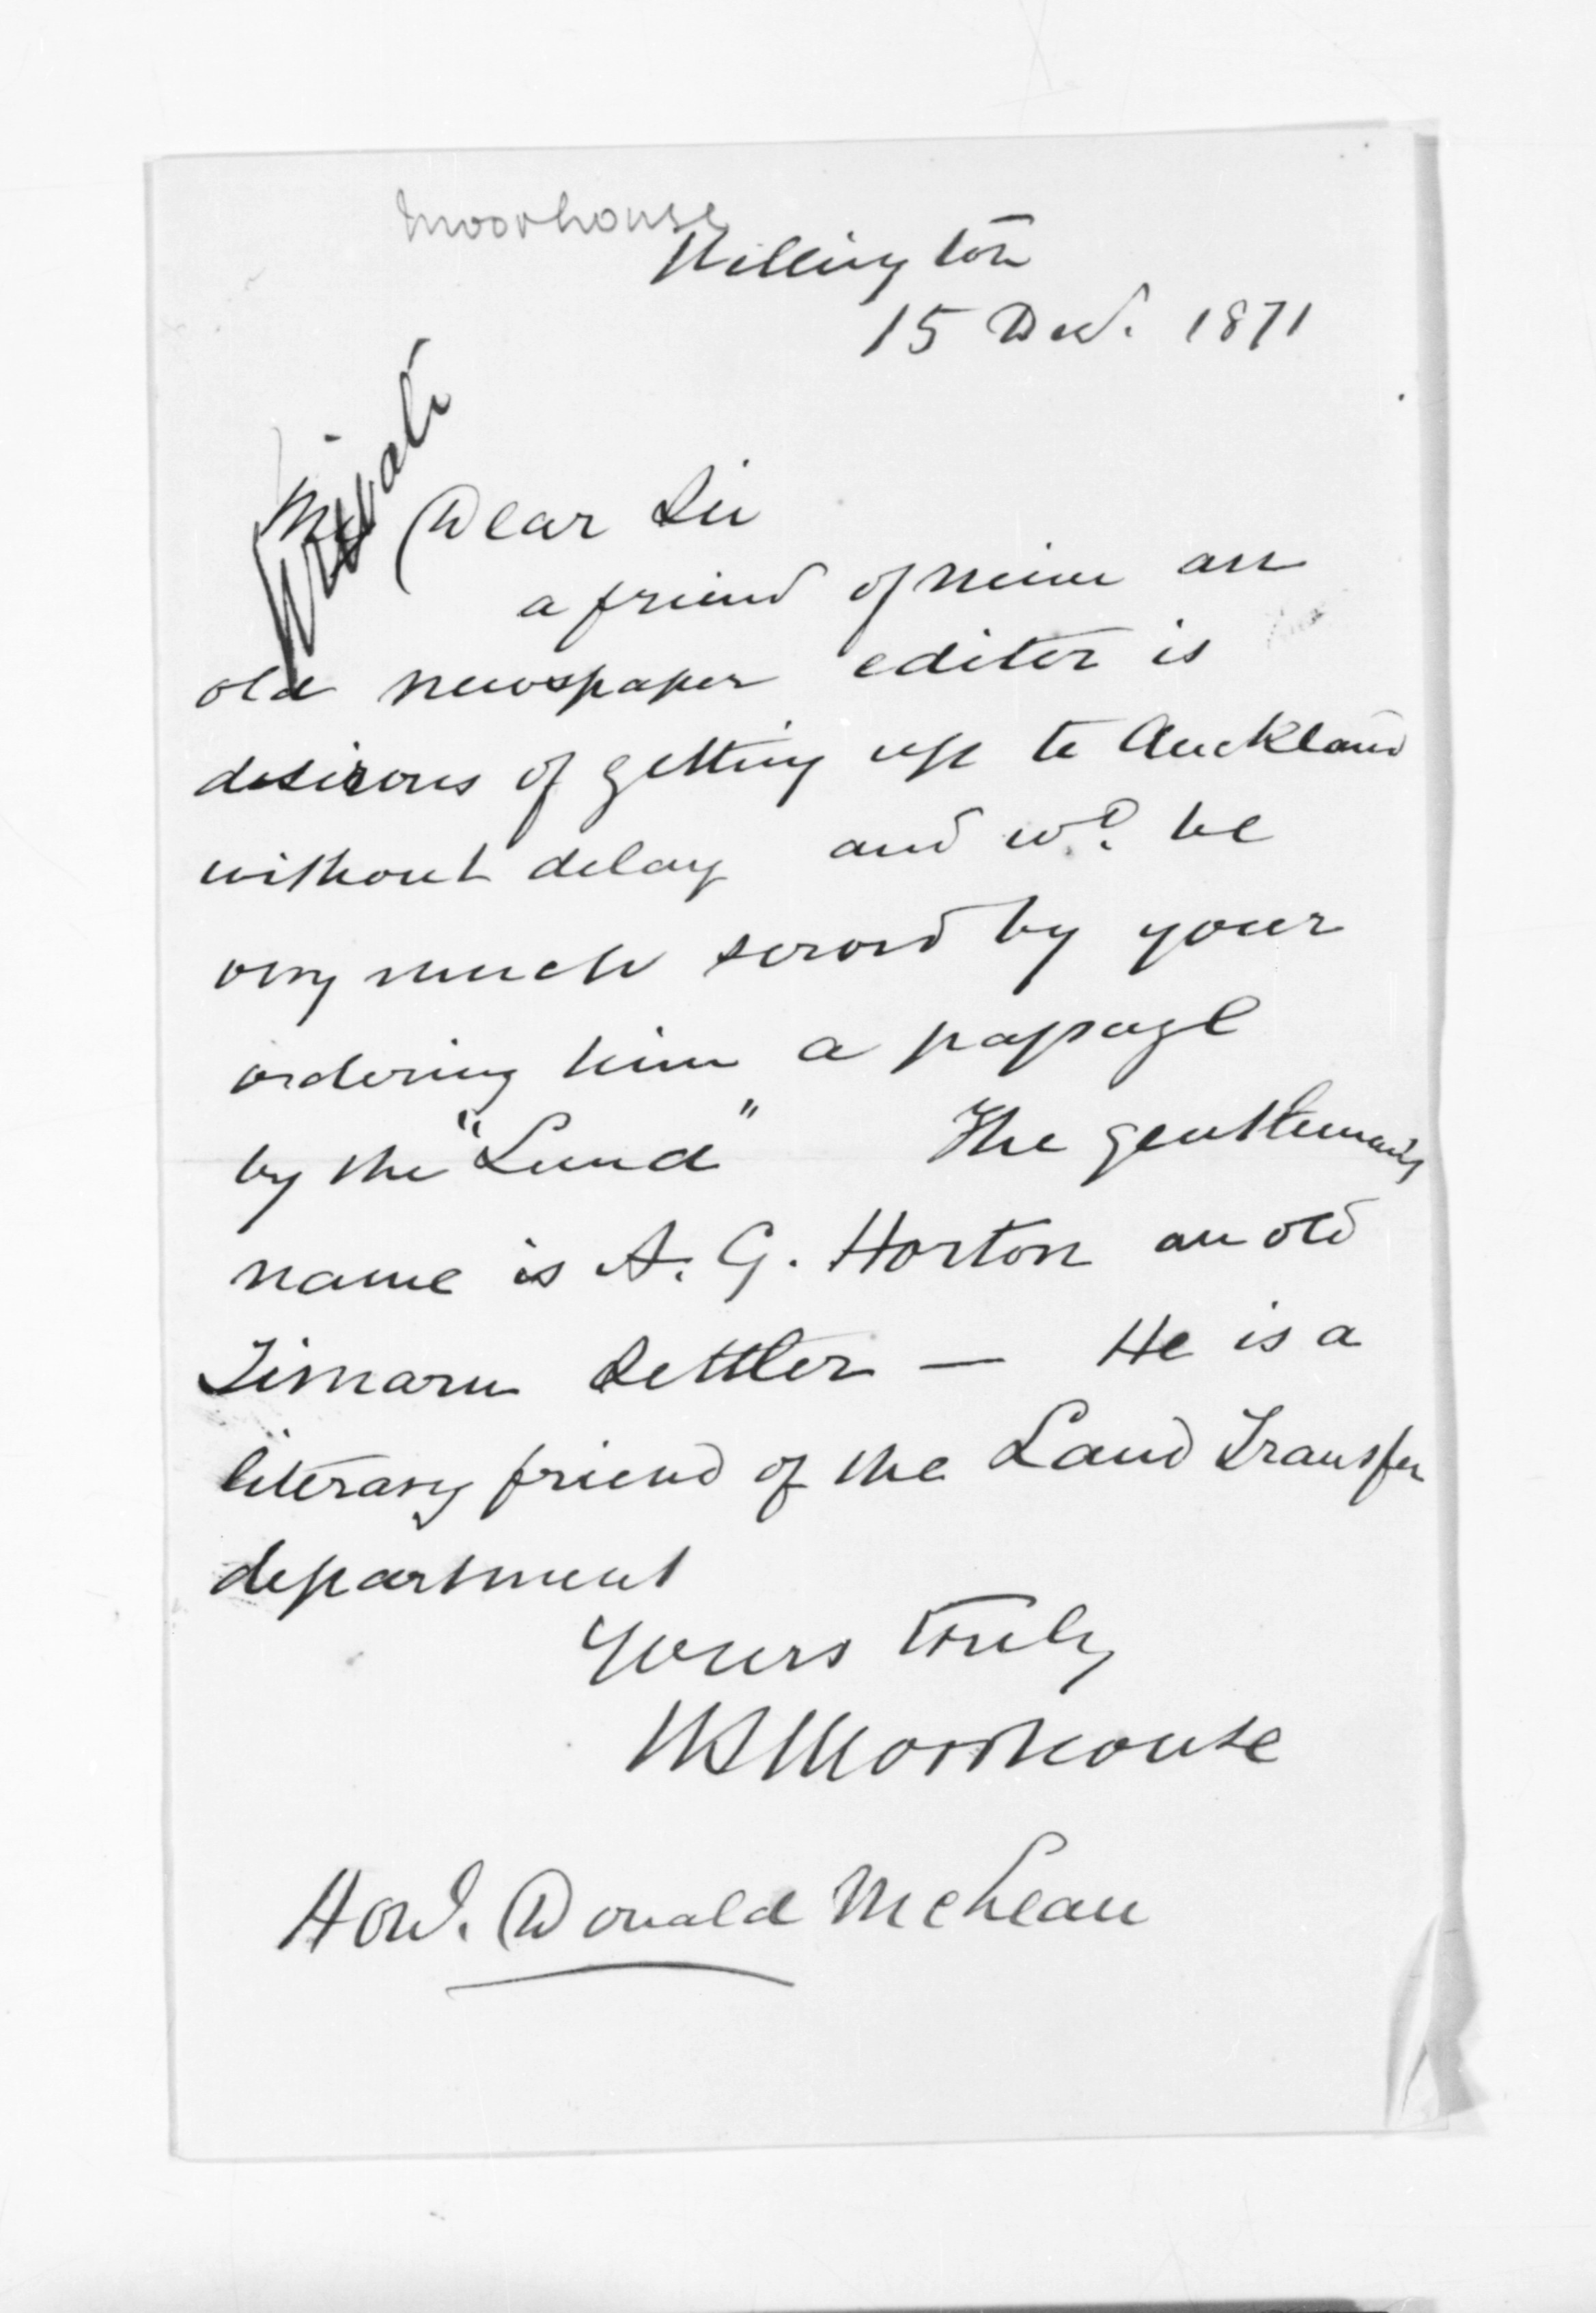 Moorhouse
Wellington
15 Dec. 1871
Private
My Dear Sir
a friend of mine an
old newspaper editor is
desirous of getting up to Auckland
without delay and wd. be
very much served by your
ordering him a passage
by the "Luna" The gentleman's
name is A. G. Horton an old
Timaru Settler — He is a
literary friend of the Land Transfer
department
Yours truly
WS Moorhouse
Honl. Donald McLean